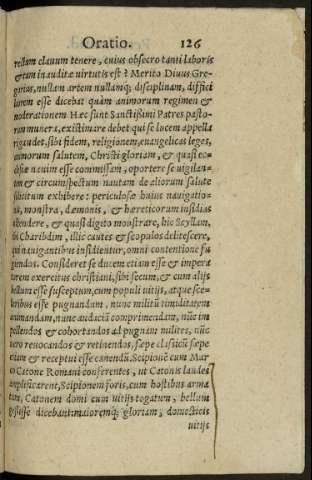 Oratio. 126
rectam clauum tenere, cuius obsecro tanti laboris
& tam inauditæ virtutis est? Merito Diuus Gre-
gorius, nullam artem nullamq; disciplinam, diffici
liorem esse dicebat quàm animorum regimen &
moderationem Hæc sunt Sanctissimi Patres pasto-
rum munera, existimare debet qui se lucem appella
ri gaudet, sibi fidem, religionem, euangelicas leges,
animorum salutem, Christi gloriam, & quasi ec-
clesiæ nauim esse commissam, oportere se vigilan-
tem & circumspectum nautam de aliorum salute
sibi exhibere: periculosæ huius nauigatio-
nis, monstra, dæmonis, & hæreticorum insidias
ostendere, & quasi digito monstrare, hic Scyllam,
hic Charibdim, illic cautes & scopulos delitescere,
qui nauigantibus insidientur, omni contentione fu
giendos. Consideret se ducem etiam esse & impera
torem exercitus christiani, sibi secum, & cum alijs
bellum esse susceptum, cum populi vitijs, atque sce-
leribus esse pugnandum, nunc militū timiditatem
animandam, nunc audaciā comprimendam, nūc im
pellendos & cohortandos ad pugnam milites, nūc
vero reuocandos & retinendos, sæpe classicū sæpe
etiam & receptui esse canendū. Scipionē cum Mar
co Catone Romani conferentes, ut Catonis laudes
amplificarent, Scipionem foris, cum hostibus arma
tum, Catonem domi cum vitijs togatum, bellum
gessisse dicebant: maioremq; gloriam, domesticis
vitijs